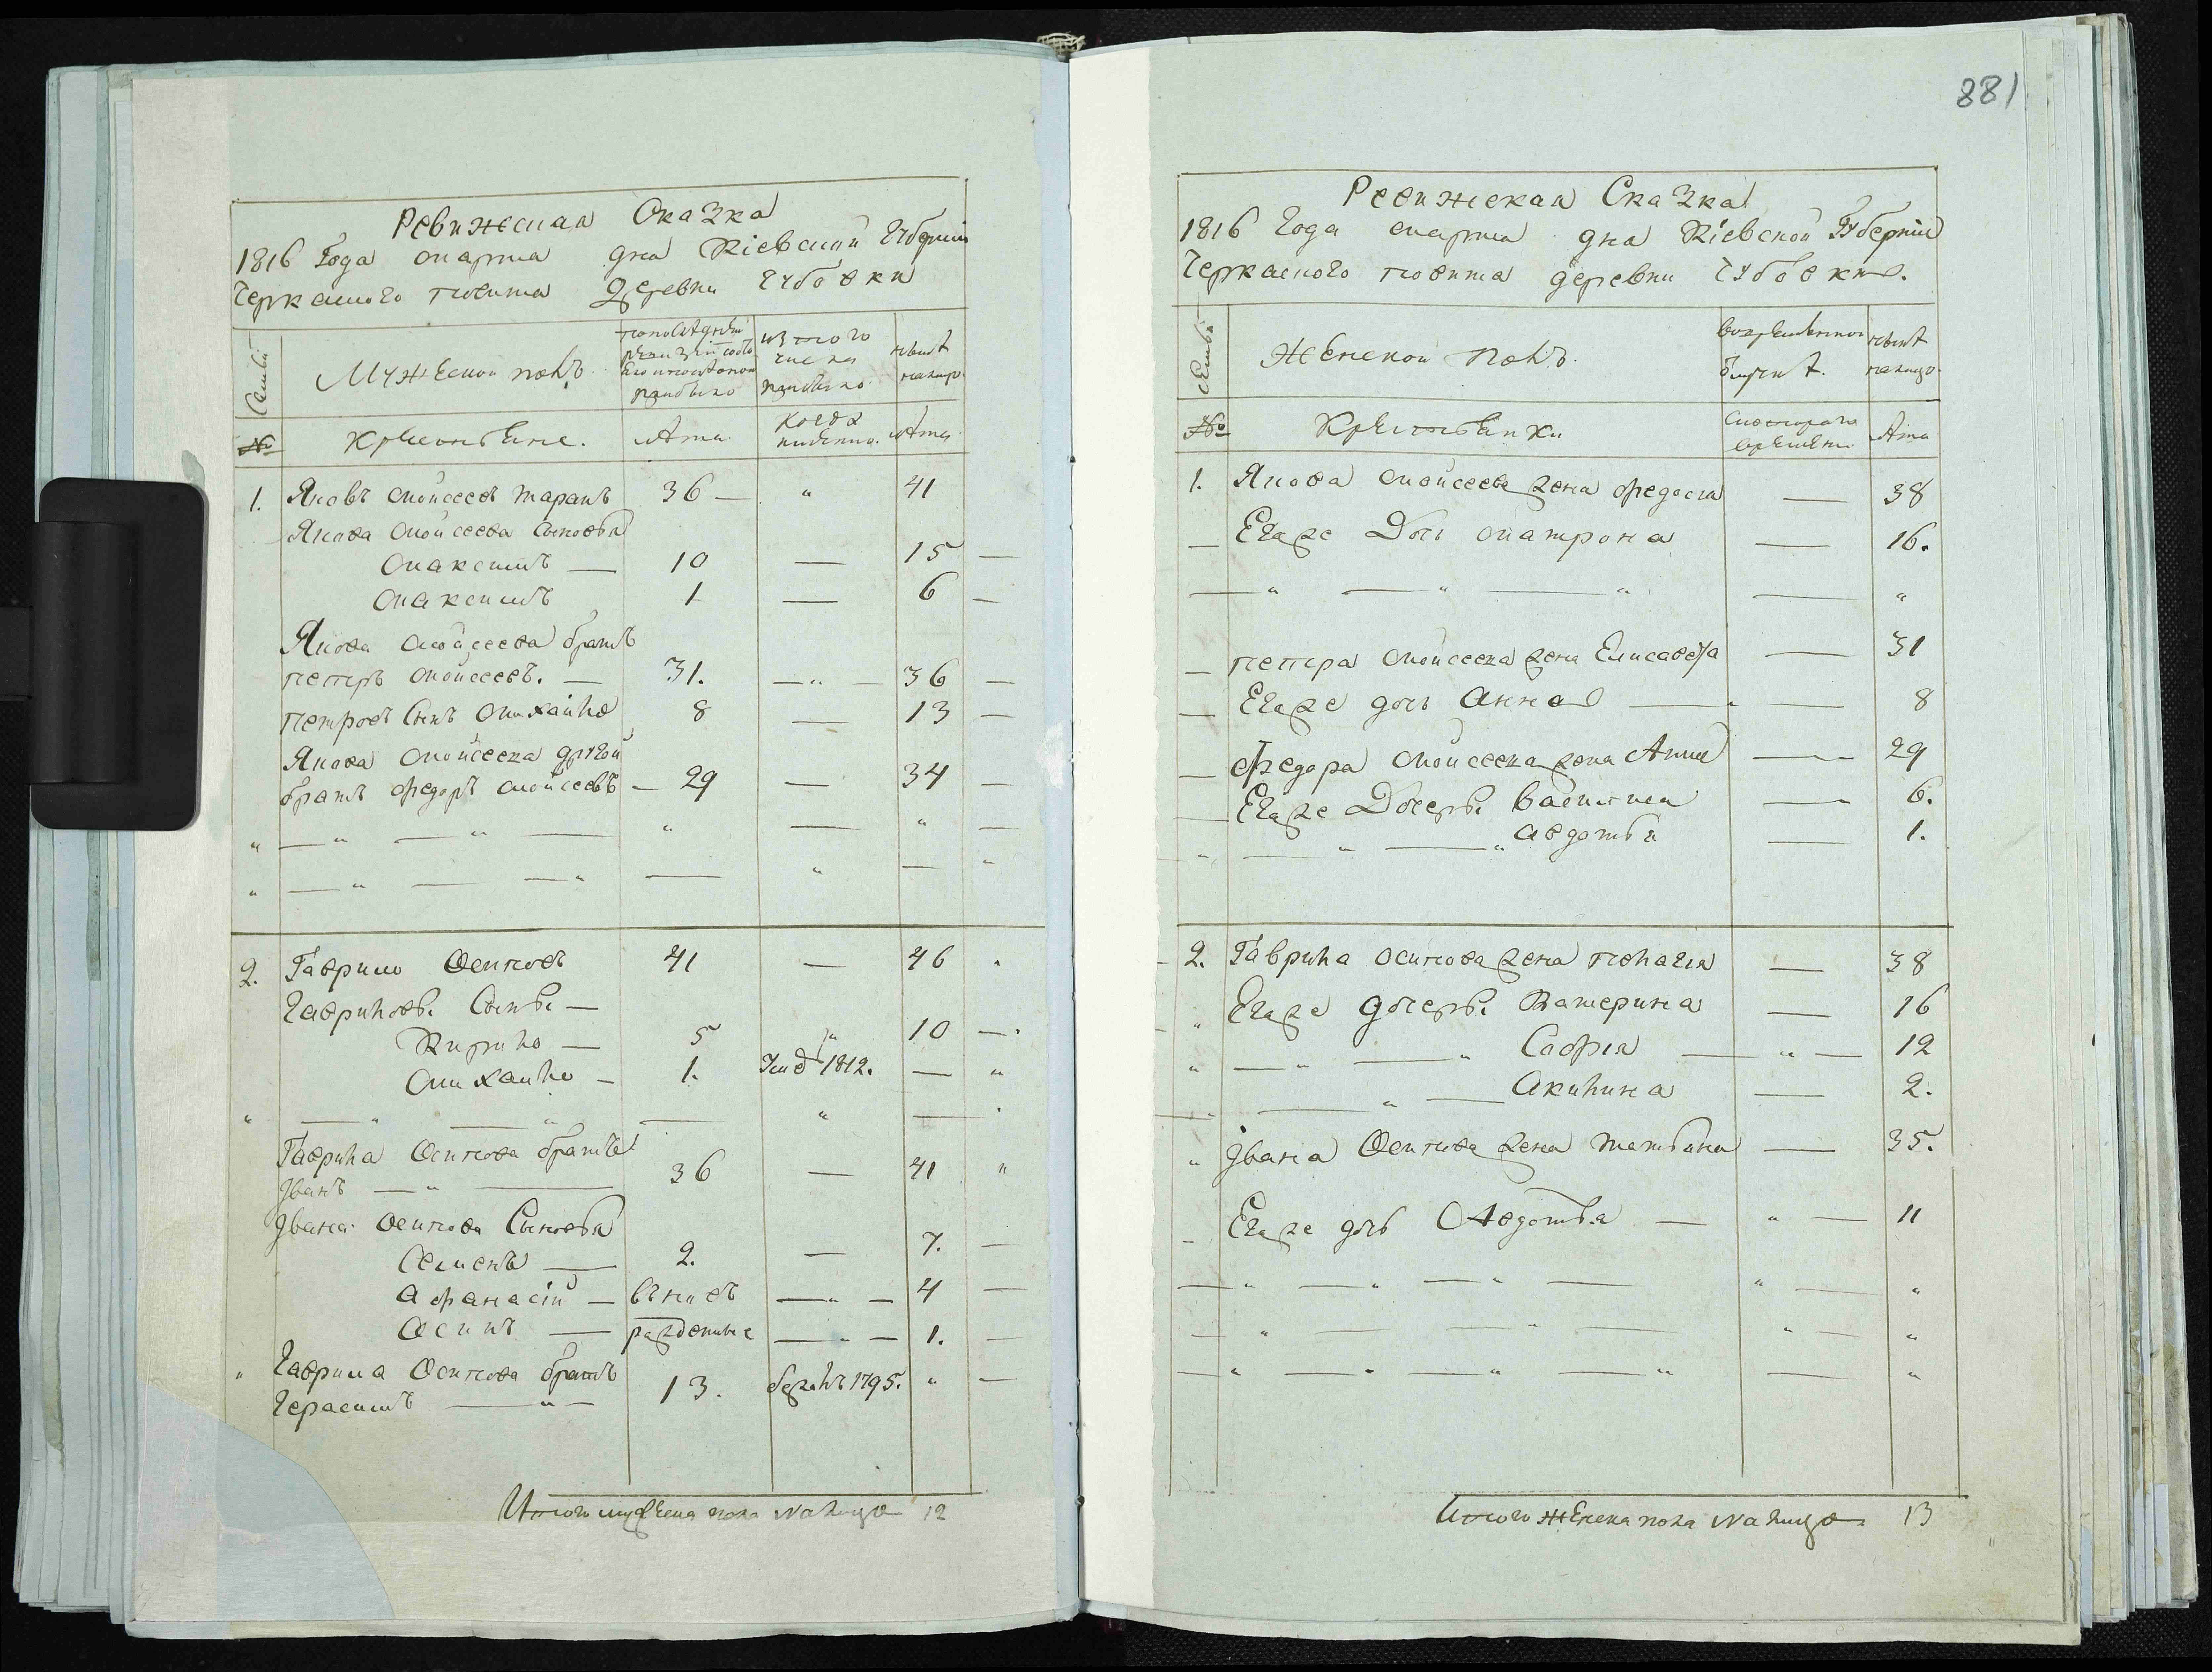 881
Ревижская Сказка
1816 Года марта дня Кіевской Губерніи
Черкаского повита Деревни Губовки
Семьи
Мужеской полъ.
по последней ревизіи состояло
и после того прибыло
изъ того числа выбыло
ныне налицо
№
Крестьяне.
лѣта
когда именно.
лѣта
1. Яковъ моисеевъ таранъ 36 — " 41
Якова Моисеева Сыновья
максимъ — 10 — 15 —
максимъ 1 — 6 —
Якова моисеева братъ
петръ моисеевъ. — 31. —"— 36 —
петровъ Сынъ михайло 8 — 13 —
Якова моисеева другой
братъ федоръ моисеевъ — 29 — 34 —
2. Гаврило Осиповъ 41 — 46
Гавриловы Сыны —
Кирило — 5 " 10 —
михайло — 1. Умеръ 1812. — "
Гаврила Осипова братья
Іванъ — " — 36 — 41 "
Івана Осипова Сыновья
Семенъ — 2. — 7. —
афанасій — вънове —"— 4 —
Осипъ — рожденные —"— 1. —
" Гаврила Осипова братъ
Герасимъ — " — 13. бежалъ 1795. " —
Итого мужеска пола Налицо 12
Ревижская Сказка
1816 Года марта дня Кіевской Губерніи
Черкаского повита деревни Губовки.
Семьи
Женской полъ.
во временной отлучке
ныне налицо
№
Крестьянки
с которого времени
лѣта
1. Якова моисеева жена федосия — 38
— Егоже Дочь матрона — 16.
— петра моисеева жена Елисавета — 31
— Егоже дочь анна — 8
— федора моисеева жена Анна — 29
— Егоже Дочеры василиса — 6.
авдотья — 1.
2. Гаврила осипова жена пелагия — 38
" Егоже дочеры Катерина — 16
" — " — " София — " — 12
— " — акилина — 2.
" Івана Осипова жена татьяна — 35.
— Егоже дочь Авдотья — " — 11
Итого женска пола Налицо 13